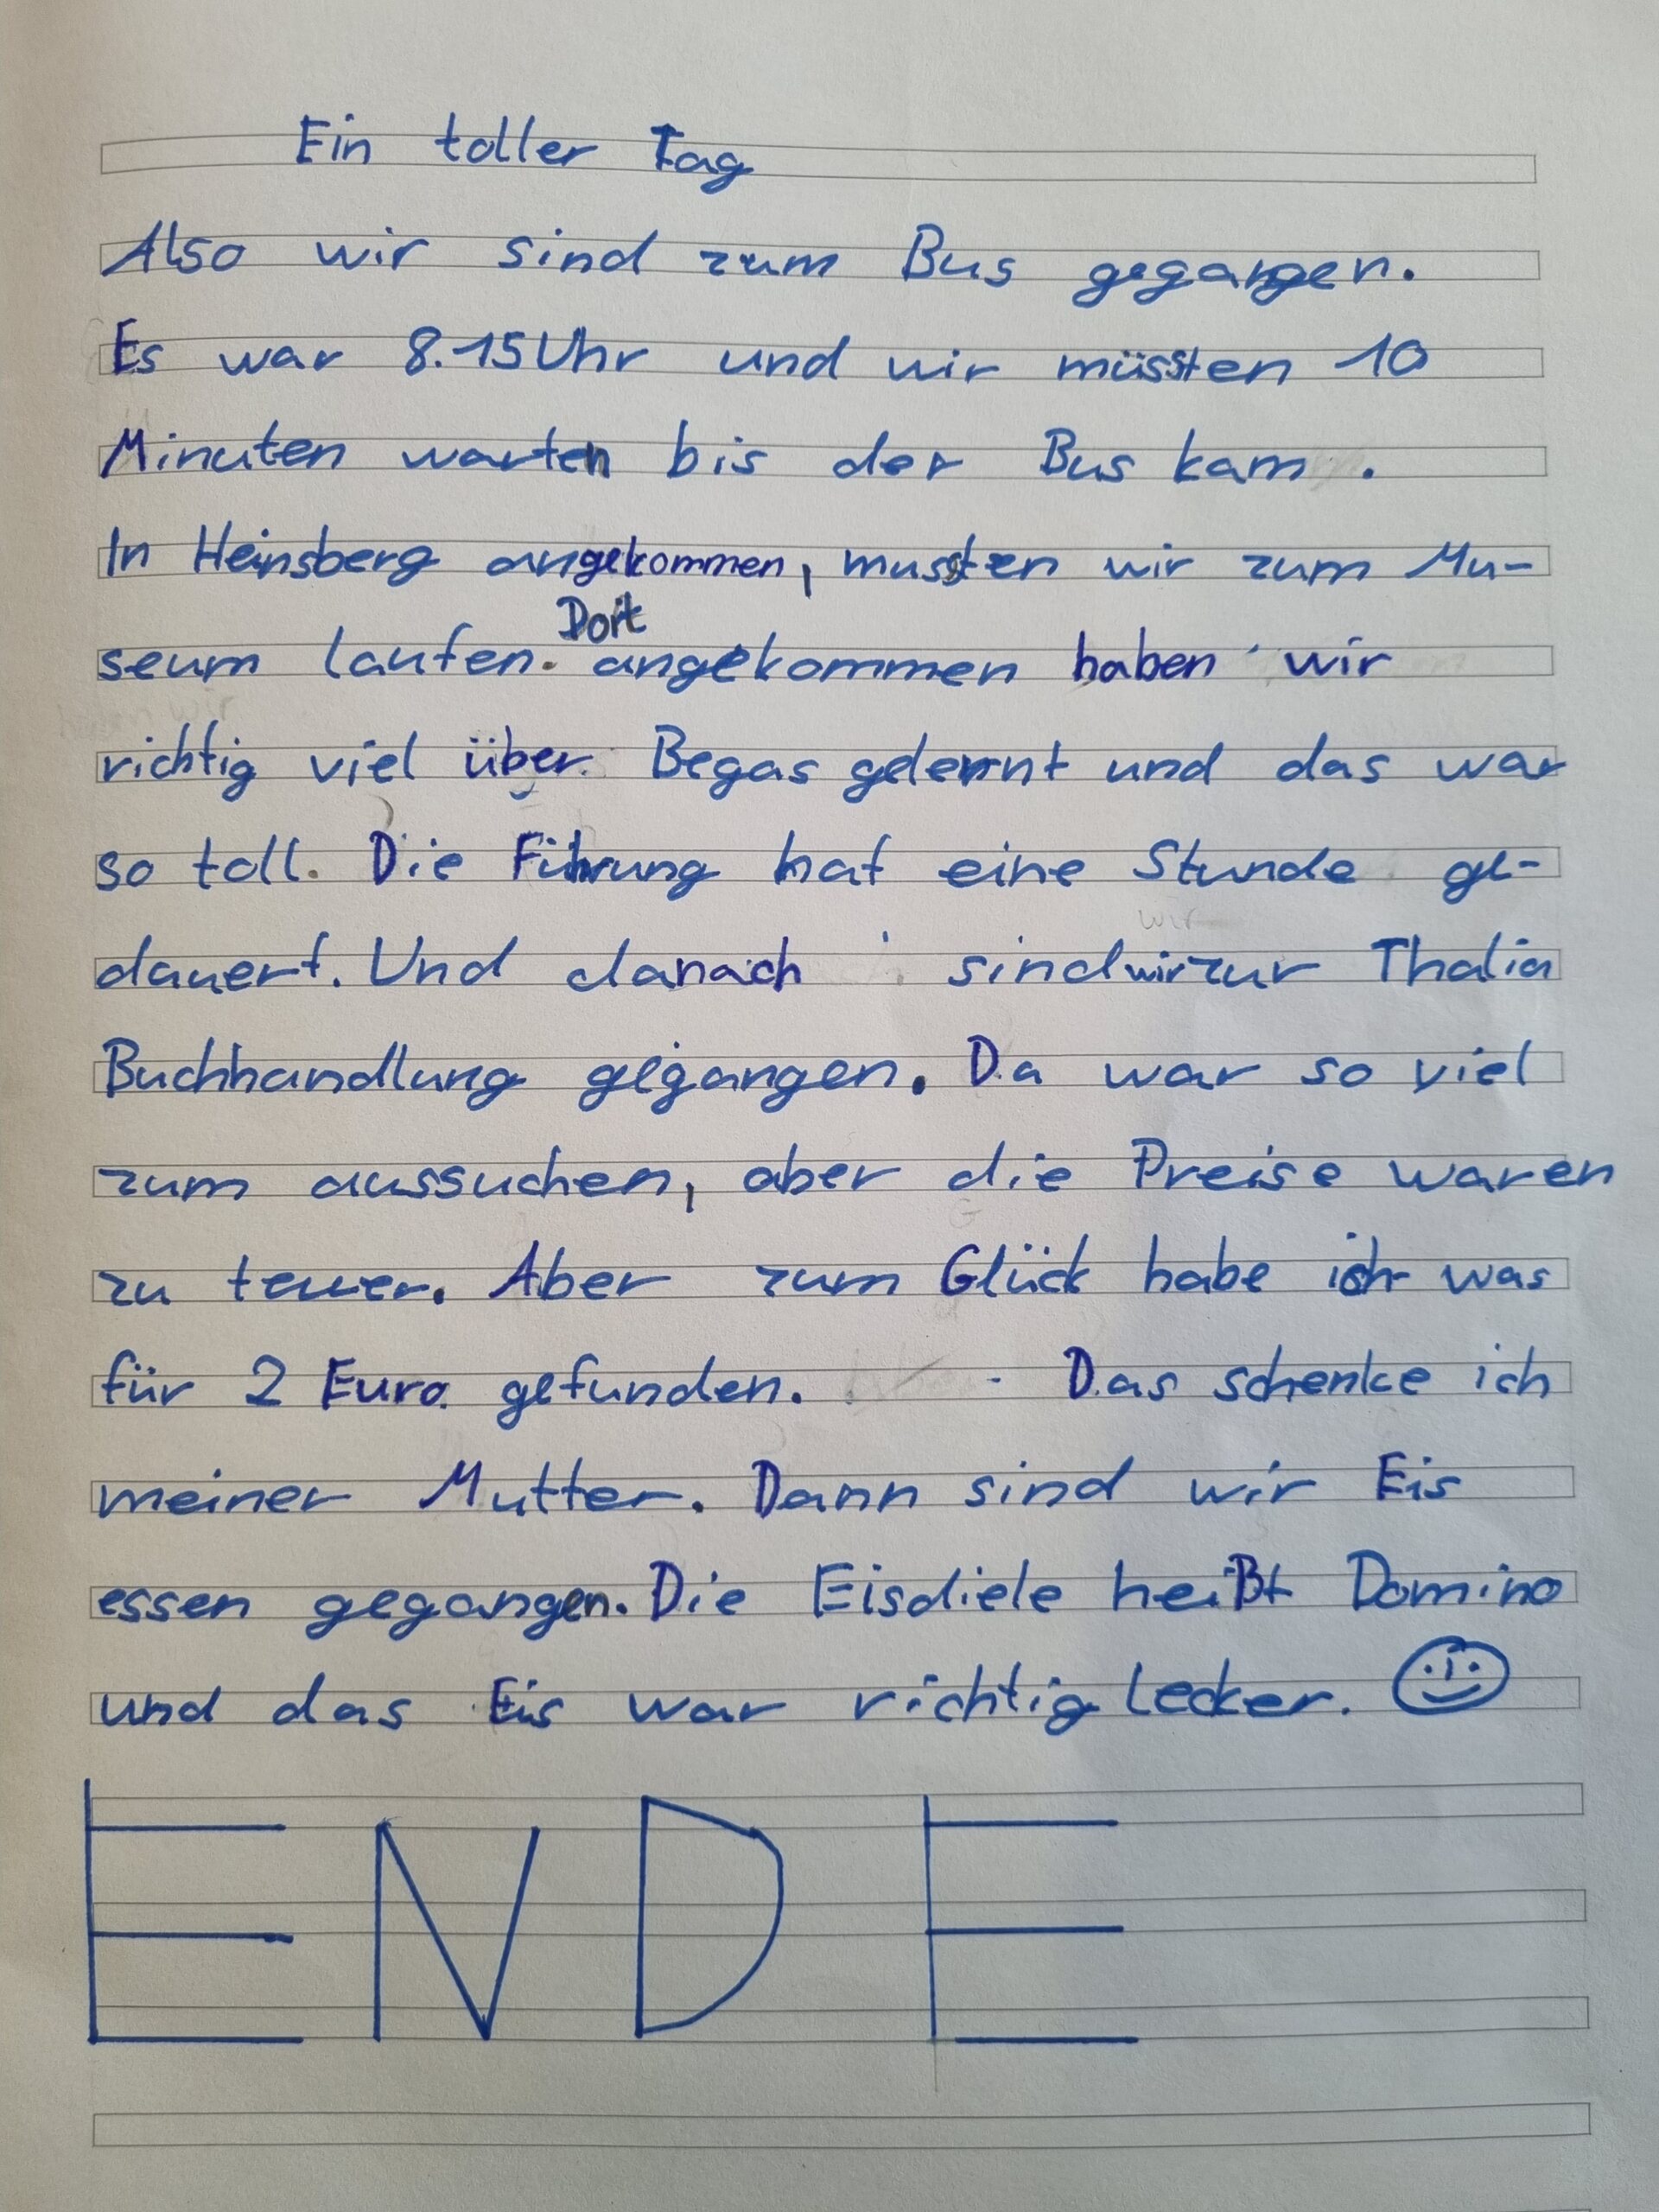 Ein toller Tag
Also wir sind zum Bus gegangen.
Es war 8.15 Uhr und wir müssten 10
Minuten warten bis der Bus kam.
In Heinsberg angekommen, mussten wir zum Mu-
Dort
seum laufen. angekommen haben wir
richtig viel über Begas gelernt und das war
so toll. Die Führung hat eine Stunde ge-
wir
dauert. Und danach sind wir zur Thalia
Buchhandlung gegangen. Da war so viel
zum aussuchen, aber die Preise waren
zu teuer. Aber zum Glück habe ich was
für 2 Euro gefunden. Das schenke ich
meiner Mutter. Dann sind wir Eis
essen gegangen. Die Eisdiele heißt Domino
und das Eis war richtig lecker.
ENDE